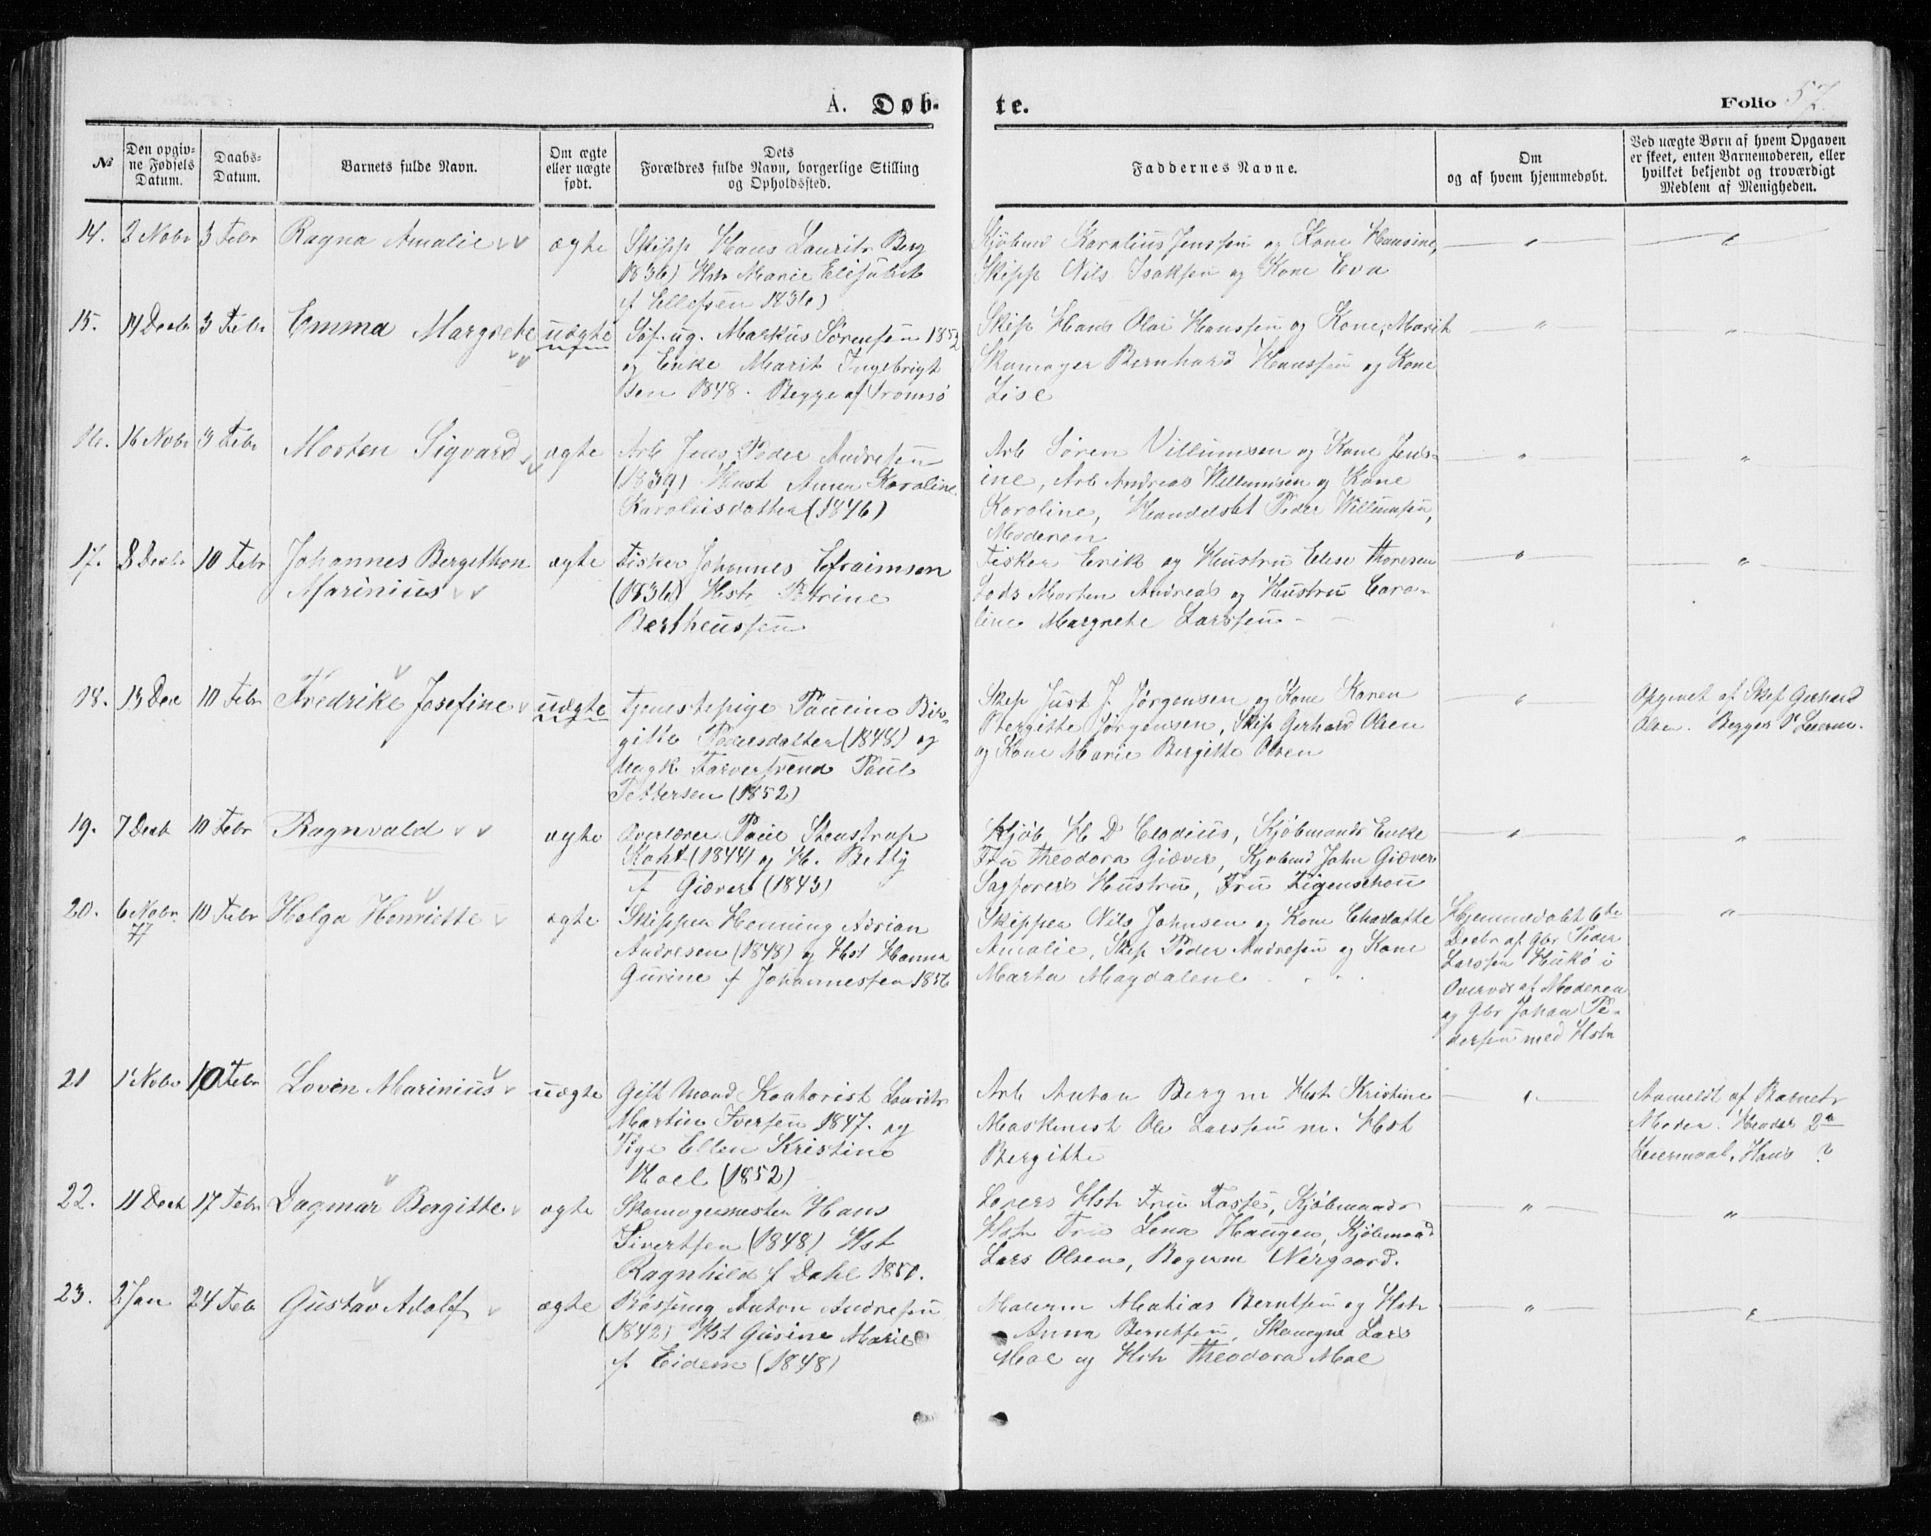 A. Døb-
te.
Folio 57.
№
Den opgiv-
ne Fødsels
Datum.
Daabs-
Datum.
Barnets fulde Navn.
Om ægte
eller uægte
født.
Dets
Forældres fulde Navn, borgerlige Stilling
og Opholdssted.
Faddernes Navne.
Om
og af hvem hjemmedøbt.
Ved uægte Børn af hvem Opgaven
er skeet, enten Barnemoderen, eller
hvilket bekjendt og troværdigt
Medlem af Menigheden.
14. 3 Febr Ragna Amalie ægte
Skipp Hans Laurits Berg
1836) Hst Marie Elisabet
f Ellefsen 1836)
Kjøbmd Karolius Jenssen og Kone Hansine,
Skipp Nils Isaksen og Kone Eva
15. 14 Decbr 3 Febr Emma Margrete uægte
Søf. ug. Markus Sørensen 1852
og Enke Marit Ingebrigt
sen 1848. Begge af Tromsø
Skip Hans Olai Hanssen og Kone Marit
Skomager Bernhard Hanssen og Kone
Lise
16. 16 Nobr 3 Febr Morten Sigvard ægte
Arb Jens Peder Andresen
(1839) Hust Anna Karoline
Karoliusdatter (1846)
Arb Søren Villumsen og Kone Jens-
ine, Arb Andreas Willumsen og Kone
Karoline, Handelsbt Peder Willumsen,
Moderen
17. 8 Decbr 10 Febr Johannes Bergithon
Marinius ægte
Fisker Johannes Efraimsen
(1836) Hst Petrine
Bertheussen
Fisker Erik og Hustru Elise Thoresen
Lods Morten Andreas og Hustru Caro-
line Margrete Larssen
18. 13 Dec 10 Febr Fredrike Josefine uægte
Tjenestepige Pauline Bir-
gitte Pedersdatter (1848) og
Ungk Farversvend Paul
Pettersen (1852)
Skip Just J. Jørgensen og Kone Karen
Bergitte Jørgensen, Skip Gerhard Olsen
og Kone Marie Bergitte Olsen
Opgivet af Skip Gerhard
Olsen. Begges 1st Leierm.
19. 7 Decb 10 Febr Ragnvald ægte
Overlærer Paul Stenstrup
Koht (1844) og H. Betty
f Giæver (1843)
Kjøb. H D Clodius, Kjøbmands Enke
Fru Theodora Giæver, Kjøbmd John Giæver
Sagførers Hustru, Fru Figenschou
20. 6 Nobr
77 10 Febr Helga Henriette ægte
Skipper Henning Adrian
Andresen (1848) og Hst Hanna
Gurine f Johannessen 1856
Skipper Nils Johnsen og Kone Charlotte
Amalie, Skip Peder Andresen og Kone
Marta Magdalene
Hjemmedøbt 6te
Decbr af Gbr Peder
Larssen Hukø i
Overvær af Moderen
og Gbr Johan Pe-
dersen med Hstr
21 1 Nobr 10 Febr Loven Marinius uægte
Gift Mand Kontorist Laurits
Martin Iversen 1847. og
Pige Ellen Kristine
Hoel (1852)
Arb Anton Berg m Hst Kristine
Maskinist Ole Larssen m. Hst
Bergitte
Anmeldt af Barnets
Moder. Hendes 2det
Leiermaal, Hans ?
22. 11 Decb 17 Febr Dagmar Bergitte ægte
Skomagermester Hans
Sivertsen (1848) Hst
Ragnhild f Dahl 1850.
Lærers Hstr Fru Fosse, Kjøbmands
Hstr Fru Lena Haugen, Kjøbmand
Lars Olsen, Bagerm Nergaard.
23. 2 Jan 24 Feb Gustav Adolf ægte
Bøssemg Anton Andresen
(1842) Hst Gusine Marie
f Eidem (1848)
Malerm Mathias Berntsen og Hstr
Anna Berntsen, Skomgr Lars
Moe og Hstr Theodora Moe